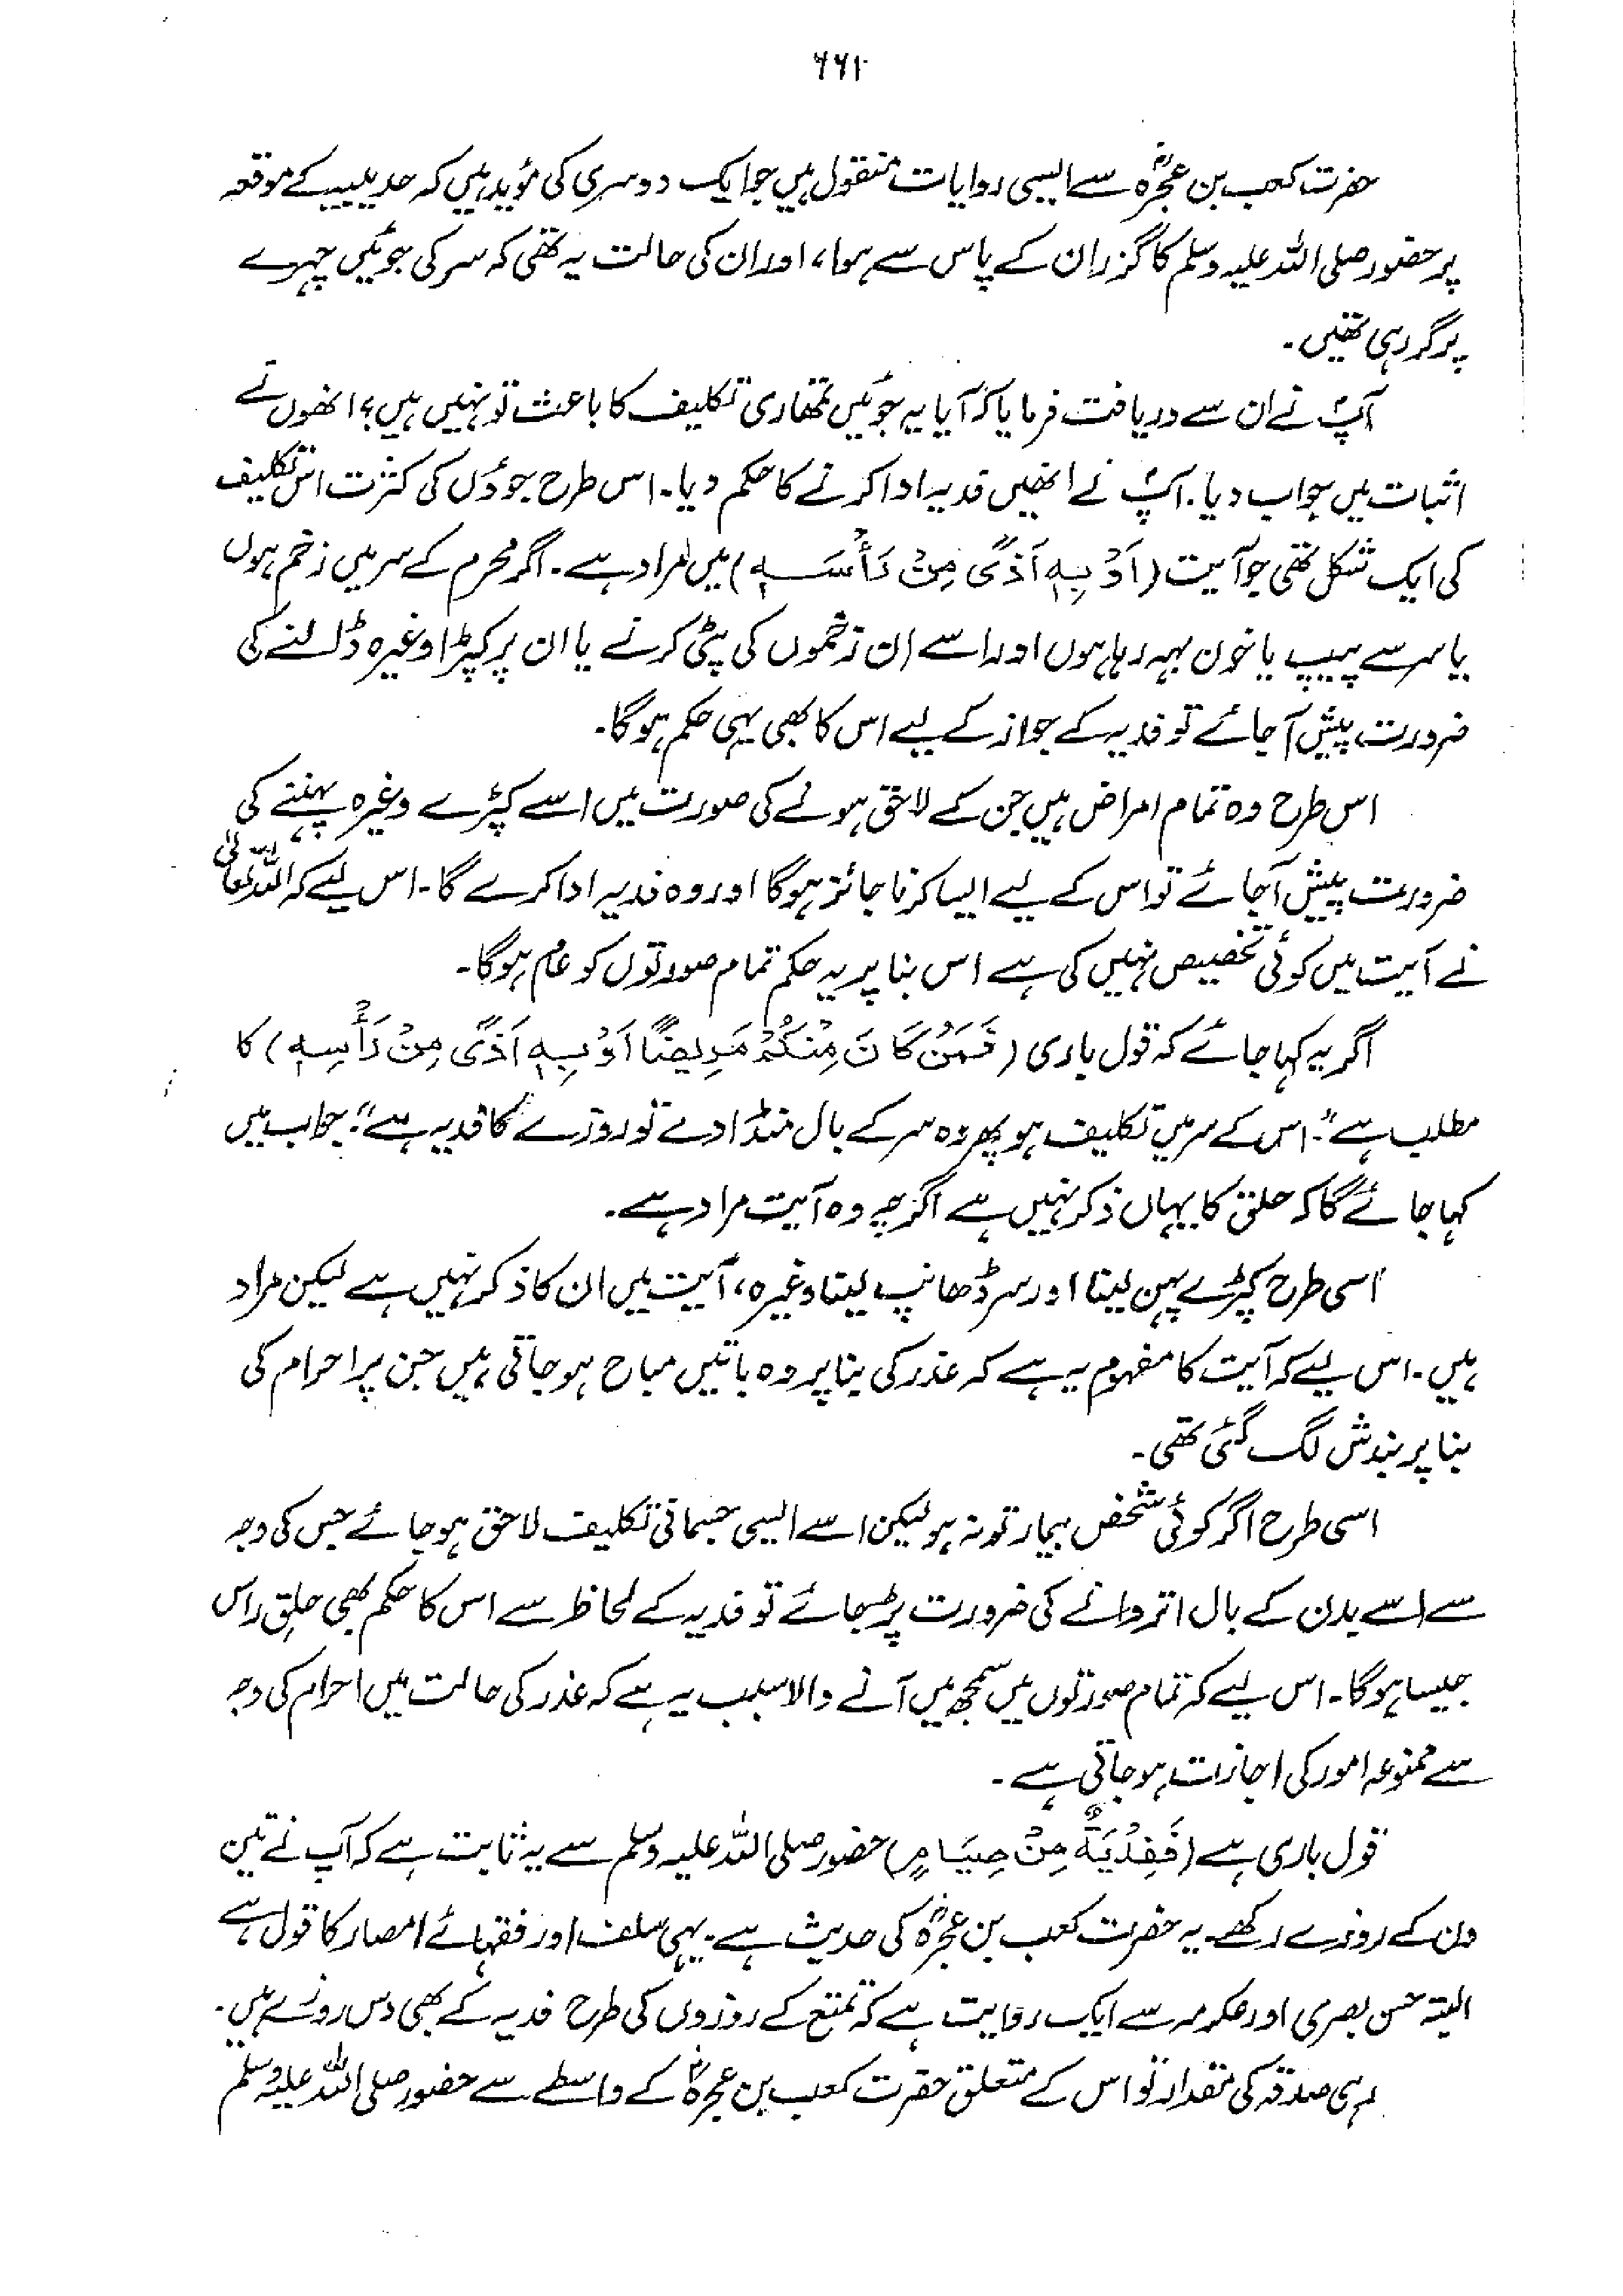 ۶۶۱
حضرت کعب بن عجرہؓ سے ایسی روایات منقول ہیں جو ایک دوسری کی مؤید ہیں کہ حدیبیہ کے موقعہ
پر حضور صلی اللہ علیہ وسلم کا گزر ان کے پاس سے ہوا، اور ان کی حالت یہ تھی کہ سر کی جوئیں چہرے
پر گر رہی تھیں۔
آپؐ نے ان سے دریافت فرمایا کہ آیا یہ جوئیں تمھاری تکلیف کا باعث تو نہیں ہیں؟ انھوں نے
اثبات میں جواب دیا۔ آپؐ نے انھیں فدیہ ادا کرنے کا حکم دیا۔ اس طرح جوؤں کی کثرت اس تکلیف
کی ایک شکل تھی جو آیت (اَوْ بِهٖ اَذًى مِنْ رَأْسَهٖ) میں مراد ہے۔ اگر محرم کے سر میں زخم ہوں
یا سر سے پیپ یا خون بہہ رہا ہوں اور اسے ان زخموں کی پٹی کرنے یا ان پر کپڑا وغیرہ ڈالنے کی
ضرورت پیش آ جائے تو فدیہ کے جواز کے لیے اس کا بھی یہی حکم ہوگا۔
اس طرح وہ تمام امراض ہیں جن کے لاحق ہونے کی صورت میں اسے کپڑے وغیرہ پہننے کی
ضرورت پیش آ جائے تو اس کے لیے ایسا کرنا جائز ہوگا اور وہ فدیہ ادا کرے گا۔ اس لیے کہ اللہ تعالیٰ
نے آیت میں کوئی تخصیص نہیں کی ہے اس بنا پر یہ حکم تمام صورتوں کو عام ہوگا۔
اگر یہ کہا جائے کہ قول باری (فَمَنْ كَانَ مِنْكُمْ مَرِيضًا اَوْ بِهٖ اَذًى مِنْ رَأْسِهٖ) کا
مطلب ہے "اس کے سر میں تکلیف ہو پھر وہ سر کے بال منڈا دے تو روزے کا فدیہ ہے"۔ جواب میں
کہا جائے گا کہ حلق کا یہاں ذکر نہیں ہے اگرچہ وہ آیت مراد ہے۔
اسی طرح کپڑے پہن لینا اور سر ڈھانپ لینا وغیرہ، آیت میں ان کا ذکر نہیں ہے لیکن مراد
ہیں۔ اس لیے کہ آیت کا مفہوم یہ ہے کہ عذر کی بنا پر وہ باتیں مباح ہو جاتی ہیں جن پر احرام کی
بنا پر بندش لگ گئی تھی۔
اسی طرح اگر کوئی شخص بیمار تو نہ ہو لیکن اسے ایسی جسمانی تکلیف لاحق ہو جائے جس کی وجہ
سے اسے بدن کے بال اتروانے کی ضرورت پڑ جائے تو فدیہ کے لحاظ سے اس کا حکم بھی حلقِ راس
جیسا ہوگا۔ اس لیے کہ تمام صورتوں میں سمجھ میں آنے والا سبب یہ ہے کہ عذر کی حالت میں احرام کی وجہ
سے ممنوعہ امور کی اجازت ہو جاتی ہے۔
قول باری ہے (فَفِدْيَةٌ مِنْ صِيَامٍ) حضور صلی اللہ علیہ وسلم سے یہ ثابت ہے کہ آپ نے تین
دن کے روزے رکھے۔ یہ حضرت کعب بن عجرہؓ کی حدیث ہے۔ یہی سلف اور فقہائے امصار کا قول ہے
البتہ حسن بصری اور عکرمہ سے ایک روایت ہے کہ تمتع کے روزوں کی طرح فدیہ کے بھی دس روزے ہیں۔
رہی صدقہ کی مقدار تو اس کے متعلق حضرت کعب بن عجرہؓ کے واسطے سے حضور صلی اللہ علیہ وسلم